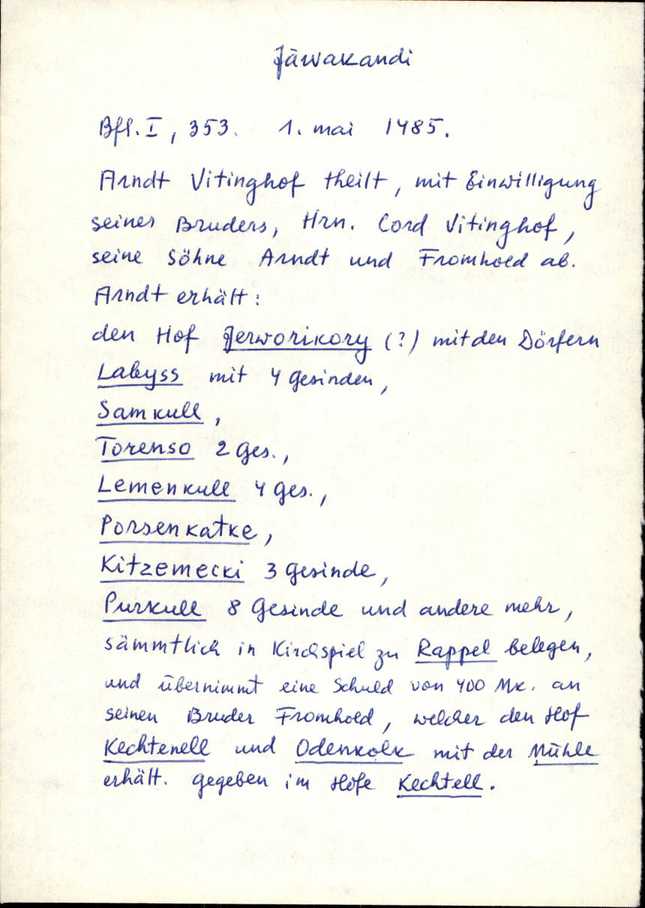 Järvakandi
Bfl. I, 353. 1. mai 1485.
Arndt Vitinghof theilt, mit Einwilligung
seines Bruders, Hrn. Cord Vitinghof,
seine Söhne Arndt und Fromhold ab.
Arndt erhält:
den Hof Jerworikory (?) mit den Dörfern
Labyss mit 4 gesinden,
Samkull,
Torenso 2 ges.,
Lemenkull 4 ges.,
Porsenkatke,
Kitzemecki 3 gesinde,
Purkull 8 Gesinde und andere mehr,
sämmtlich in Kirchspiel zu Rappel belegen,
und übernimmt eine Schuld von 400 Mk. an
seinen Bruder Fromhold, welcher den Hof
Kechtenell und Odenkolk mit der Mühle
erhält. gegeben im Hofe Kechtell.